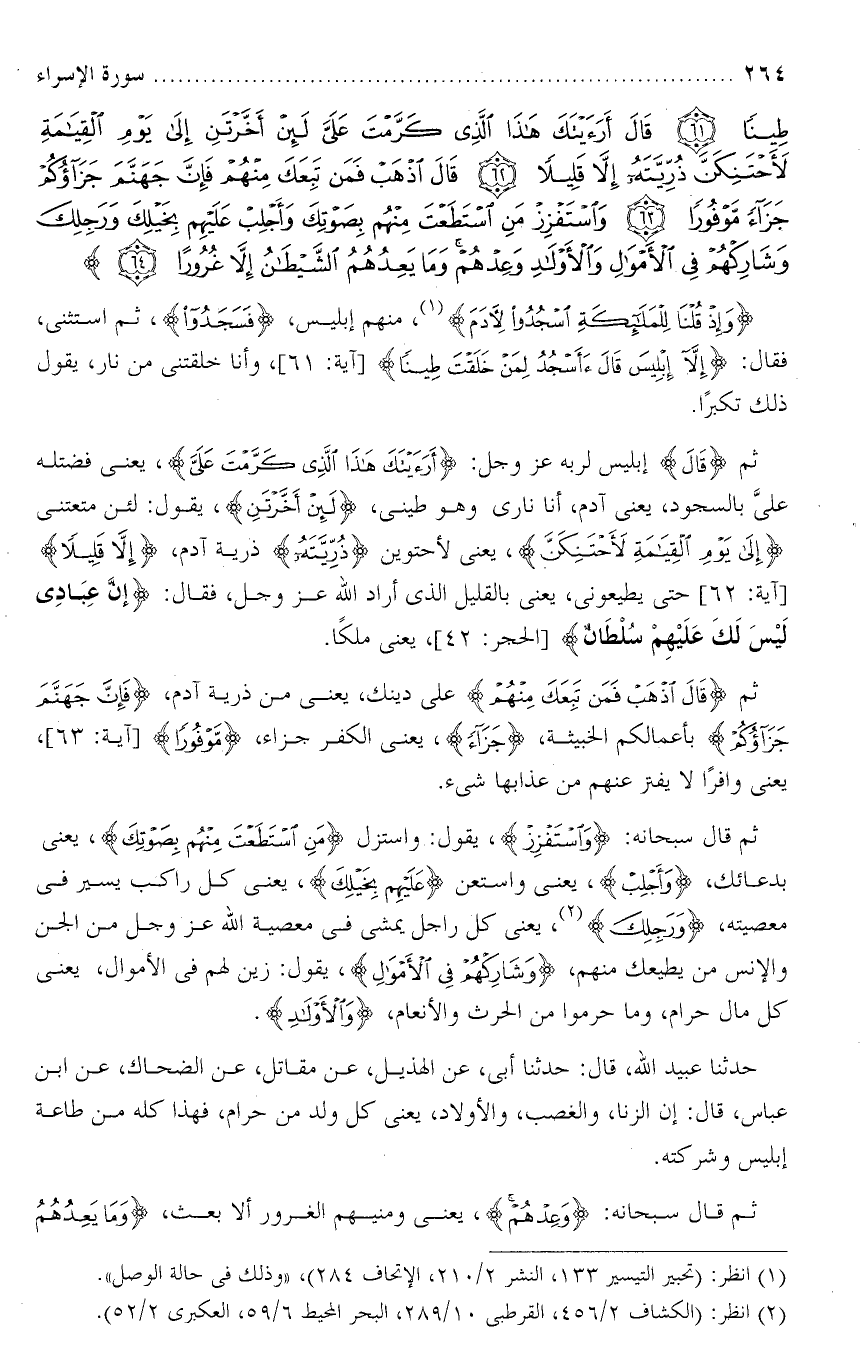 ٢٦٤ .......................................................................... سورة الإسراء
طِينًا ﴿٦١﴾ قَالَ أَرَءَيْتَكَ هَٰذَا ٱلَّذِى كَرَّمْتَ عَلَىَّ لَئِنْ أَخَّرْتَنِ إِلَىٰ يَوْمِ ٱلْقِيَٰمَةِ
لَأَحْتَنِكَنَّ ذُرِّيَّتَهُۥٓ إِلَّا قَلِيلًا ﴿٦٢﴾ قَالَ ٱذْهَبْ فَمَن تَبِعَكَ مِنْهُمْ فَإِنَّ جَهَنَّمَ جَزَآؤُكُمْ
جَزَآءً مَّوْفُورًا ﴿٦٣﴾ وَٱسْتَفْزِزْ مَنِ ٱسْتَطَعْتَ مِنْهُم بِصَوْتِكَ وَأَجْلِبْ عَلَيْهِم بِخَيْلِكَ وَرَجِلِكَ
وَشَارِكْهُمْ فِى ٱلْأَمْوَٰلِ وَٱلْأَوْلَٰدِ وَعِدْهُمْ ۚ وَمَا يَعِدُهُمُ ٱلشَّيْطَٰنُ إِلَّا غُرُورًا ﴿٦٤﴾ ﴾
﴿وَإِذْ قُلْنَا لِلْمَلَٰٓئِكَةِ ٱسْجُدُوا۟ لِأَدَمَ﴾(١)، منهم إبليس، ﴿فَسَجَدُوٓا۟﴾، ثم استثنى،
فقال: ﴿إِلَّآ إِبْلِيسَ قَالَ ءَأَسْجُدُ لِمَنْ خَلَقْتَ طِينًا﴾ [آية: ٦١]، وأنا خلقتنى من نار، يقول
ذلك تكبرًا.
ثم ﴿قَالَ﴾ إبليس لربه عز وجل: ﴿أَرَءَيْتَكَ هَٰذَا ٱلَّذِى كَرَّمْتَ عَلَىَّ﴾، يعنى فضلته
علىَّ بالسجود، يعنى آدم، أنا نارى وهو طينى، ﴿لَئِنْ أَخَّرْتَنِ﴾، يقول: لئن متعتنى
﴿إِلَىٰ يَوْمِ ٱلْقِيَٰمَةِ لَأَحْتَنِكَنَّ﴾، يعنى لأحتوين ﴿ذُرِّيَّتَهُۥٓ﴾ ذرية آدم، ﴿إِلَّا قَلِيلًا﴾
[آية: ٦٢] حتى يطيعونى، يعنى بالقليل الذى أراد الله عز وجل، فقال: ﴿إنَّ عِبَادِى
لَيْسَ لَكَ عَلَيْهِمْ سُلْطَانٌ﴾ [الحجر: ٤٢]، يعنى ملكًا.
ثم ﴿قَالَ ٱذْهَبْ فَمَن تَبِعَكَ مِنْهُمْ﴾ على دينك، يعنى من ذرية آدم، ﴿فَإِنَّ جَهَنَّمَ
جَزَآؤُكُمْ﴾ بأعمالكم الخبيثة، ﴿جَزَآءً﴾، يعنى الكفر جزاء، ﴿مَّوْفُورًا﴾ [آية: ٦٣]،
يعنى وافرًا لا يفتر عنهم من عذابها شىء.
ثم قال سبحانه: ﴿وَٱسْتَفْزِزْ﴾، يقول: واستزل ﴿مَنِ ٱسْتَطَعْتَ مِنْهُم بِصَوْتِكَ﴾، يعنى
بدعائك، ﴿وَأَجْلِبْ﴾، يعنى واستعن ﴿عَلَيْهِم بِخَيْلِكَ﴾، يعنى كل راكب يسير فى
معصيته، ﴿وَرَجِلِكَ﴾(٢)، يعنى كل راجل يمشى فى معصية الله عز وجل من الجن
والإنس من يطيعك منهم، ﴿وَشَارِكْهُمْ فِى ٱلْأَمْوَٰلِ﴾، يقول: زين لهم فى الأموال، يعنى
كل مال حرام، وما حرموا من الحرث والأنعام، ﴿وَٱلْأَوْلَٰدِ﴾.
حدثنا عبيد الله، قال: حدثنا أبى، عن الهذيل، عن مقاتل، عن الضحاك، عن ابن
عباس، قال: إن الزنا، والغصب، والأولاد، يعنى كل ولد من حرام، فهذا كله من طاعة
إبليس وشركته.
ثم قال سبحانه: ﴿وَعِدْهُمْ ۚ﴾، يعنى ومنيهم الغرور ألا بعث، ﴿وَمَا يَعِدُهُمُ
(١) انظر: (تحبير التيسير ١٣٣، النشر ٢١٠/٢، الإتحاف ٢٨٤)، «وذلك فى حالة الوصل».
(٢) انظر: (الكشاف ٤٥٦/٢، القرطبى ٢٨٩/١٠، البحر المحيط ٥٩/٦، العكبرى ٥٢/٢).